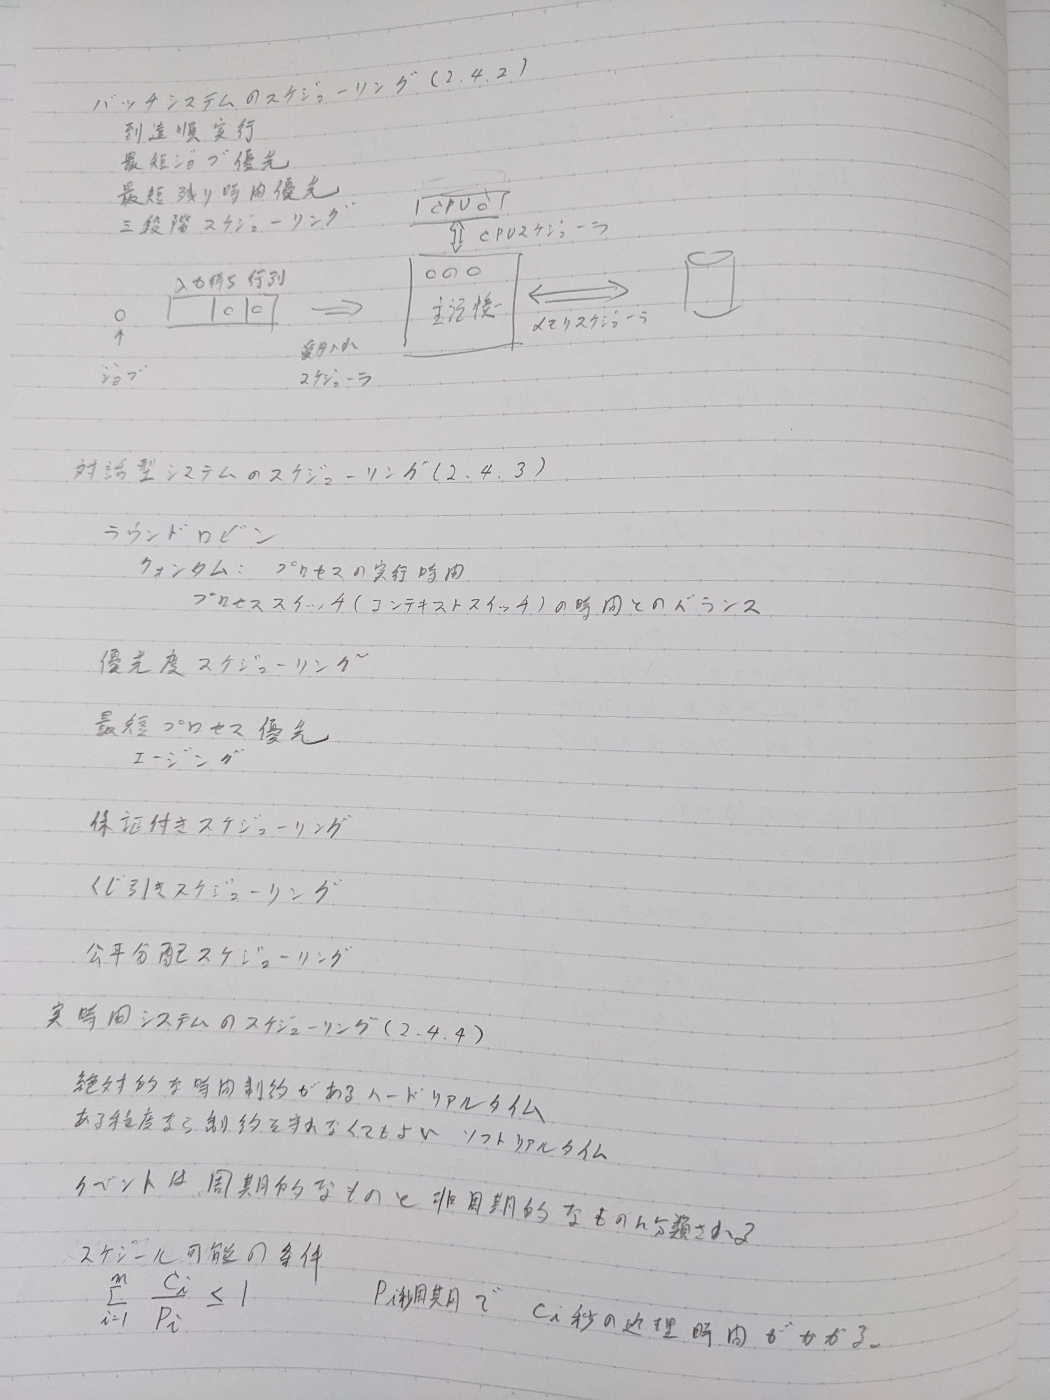 バッチシステムのスケジューリング(2.4.2)
到達順実行
最短ジョブ優先
最短残り時間優先
三段階スケジューリング
CPU
CPUスケジューラ
入力待ち行列
主記憶
メモリスケジューラ
受け入れ
スケジューラ
ジョブ
対話型システムのスケジューリング(2.4.3)
ラウンドロビン
クォンタム: プロセスの実行時間
プロセススイッチ(コンテキストスイッチ)の時間とのバランス
優先度スケジューリング
最短プロセス優先
エージング
保証付きスケジューリング
くじ引きスケジューリング
公平分配スケジューリング
実時間システムのスケジューリング(2.4.4)
絶対的な時間制約があるハードリアルタイム
ある程度なら制約を守れなくてもよい ソフトリアルタイム
イベントは周期的なものと非周期的なものに分類される
スケジール可能の条件
m
∑ Ci/Pi ≤ 1 Pi秒周期で Ci秒の処理時間がかかる。
i=1